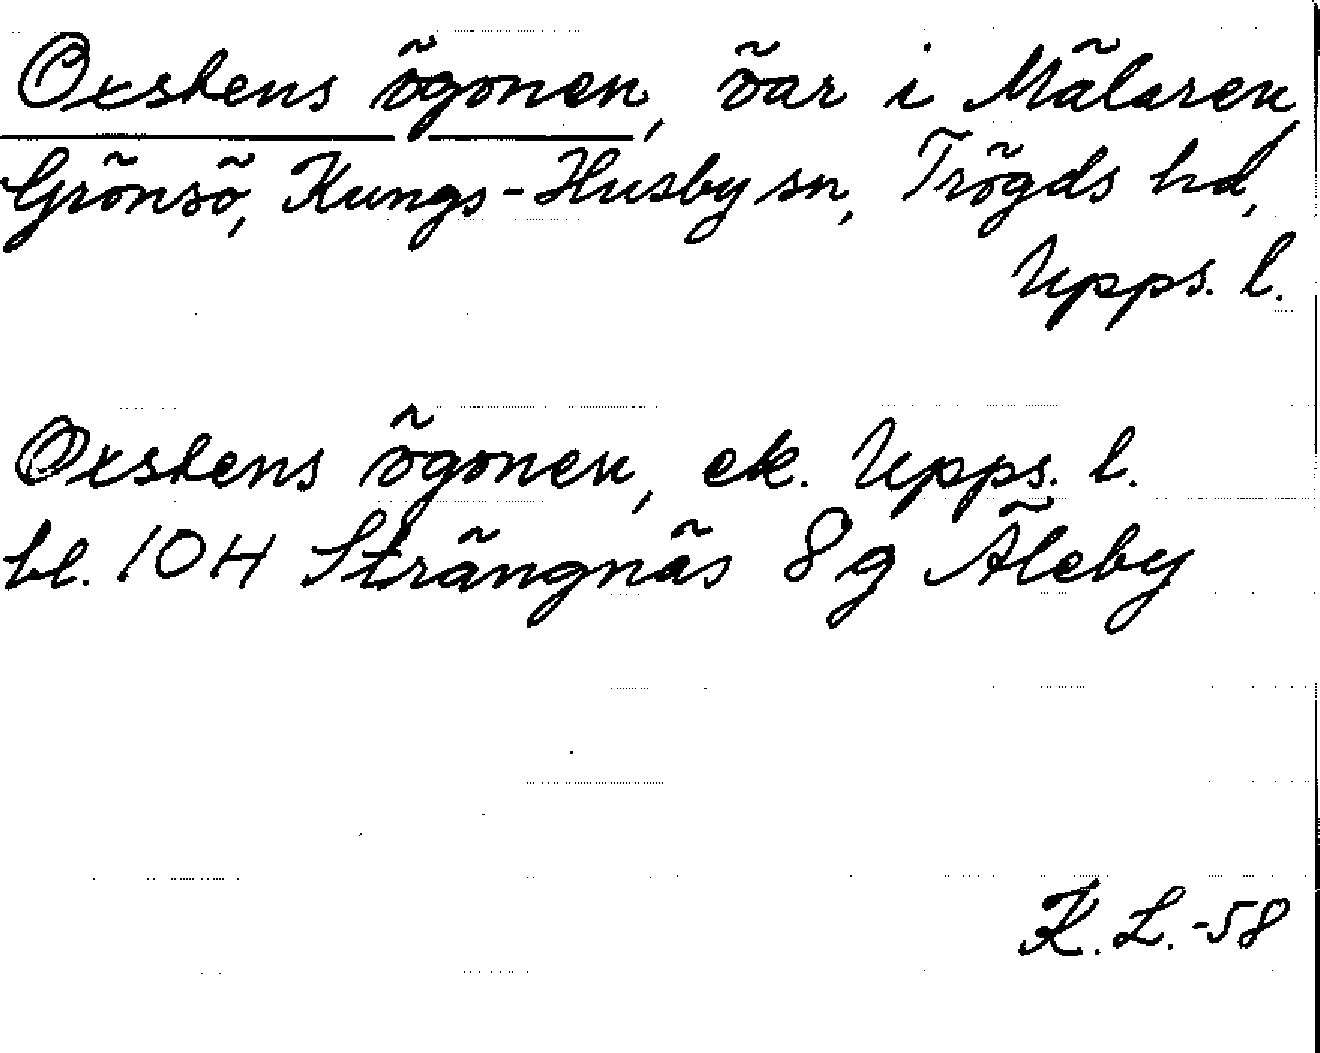 Oxstens ögonen, öar i Mälaren,
Grönsö, Kungs-Husby sn, Trögds hd,
Upps. l.
Oxstens ögonen, ek. Upps. l.
bl. 10H Strängnäs 8g Äleby
K. L. -58